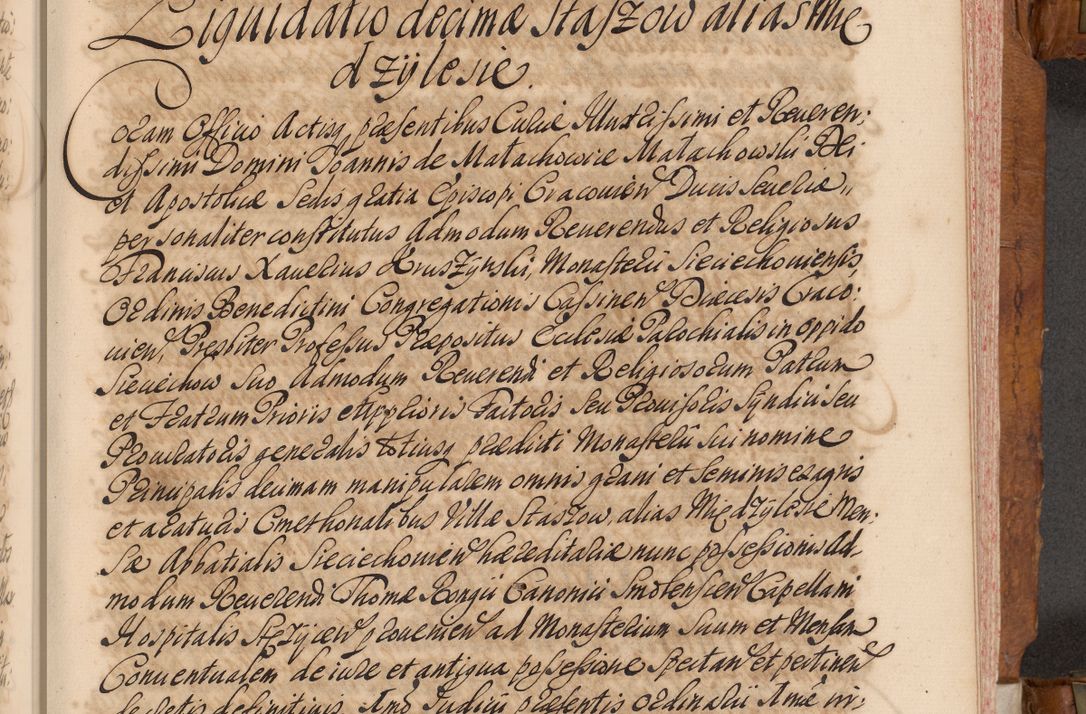 Liquidatio decimæ Staszow alias Mie
dzÿlesie.
Coram Officio Actisq præsentibus Curiæ Illustrissimi et Reueren:
dissimi Domini Joannis de Małachowice Małachowski Dei
et Apostolicæ Sedis gratia Episcopi Cracouien Ducis Seueriæ,
personaliter constitutus Admodum Reuerendus et Religiosus
Franciscus Xauerius Kruszÿnski, Monasterii Sieciechouiensis
Ordinis Benedictini Congregationis Cassinen Diæcesis Craco:
uien, Presbiter Professus Præpositus Ecclesiæ Parochialis in oppido
Sieciechow suo Admodum Reuerendi et Religiosorum Patrum
et Fratrum Prioris Factoris seu Prouisoris Syndici seu
Procuratoris generalis totiusq prædicti Monasterii sui nomine
Principalis decimam manipularem omnis grani et seminis ex agris
et araturis Cmethonalibus Villæ Staszow, alias Miedzÿlesie Men:
sæ Abbatialis Sieciechouien hæreditariæ nunc possessionis Ad,
modum Reuerendi Thomæ Rongii Canonici Smolenscien Capellani
Hospitalis prouenien ad Monasterium suum et Mensam
Conuentualem de iure et antiqua possessione spectan et pertinen
decretis definitiuis Judicii præsentis ordinarii